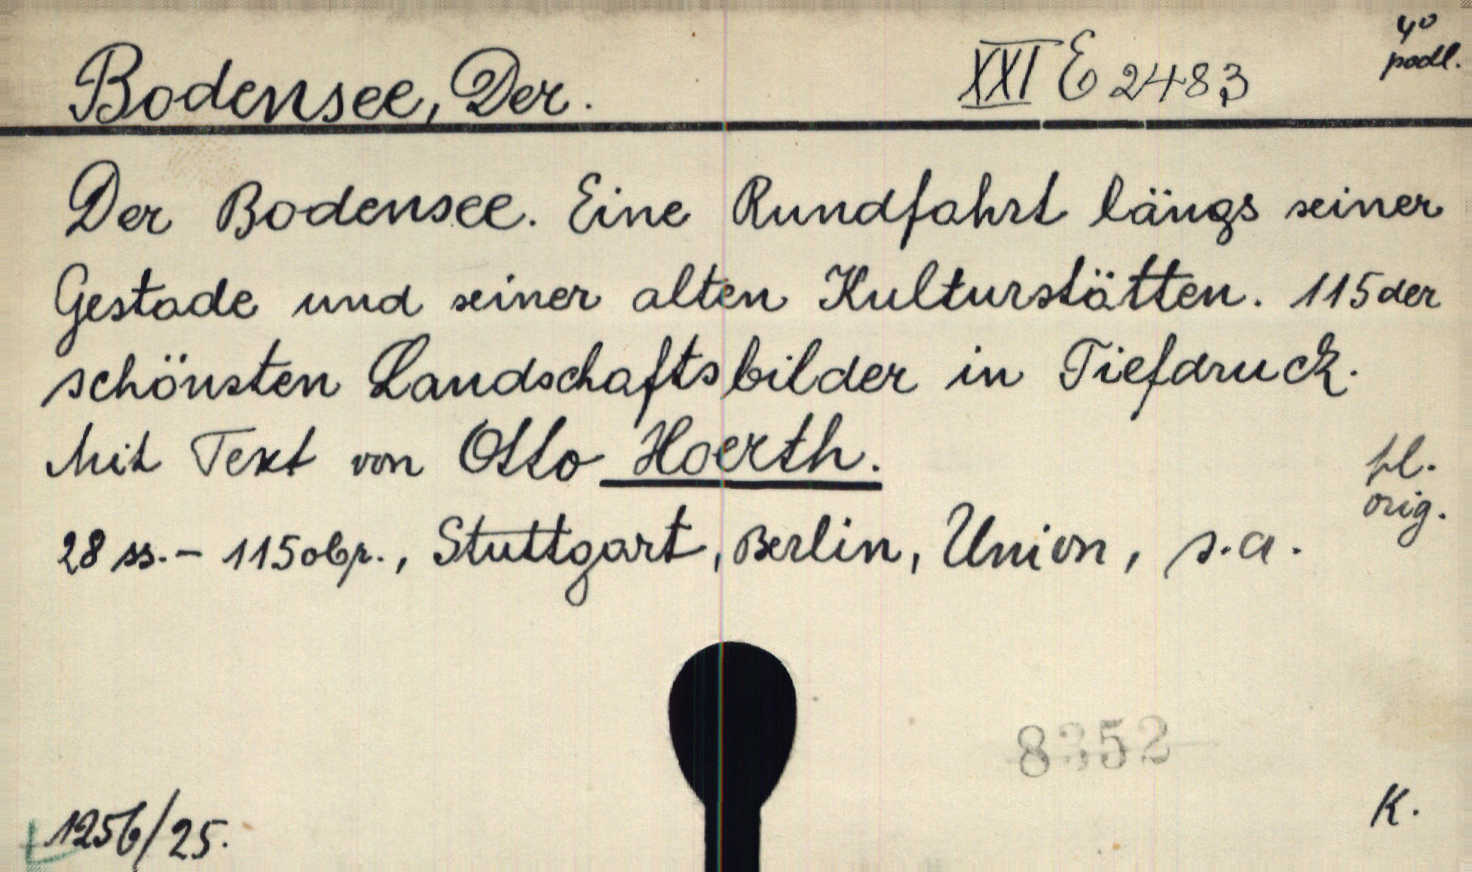 Bodensee, Der.
XXI E 2483
4°
podl.
Der Bodensee. Eine Rundfahrt längs seiner
Gestade und seiner alten Kulturstätten. 115 der
schönsten Landschaftsbilder in Tiefdruck.
Mit Text von Otto Hoerth.
pl.
orig.
28 ss. - 115 obr., Stuttgart, Berlin, Union, s.a.
8352
1256/25.
K.